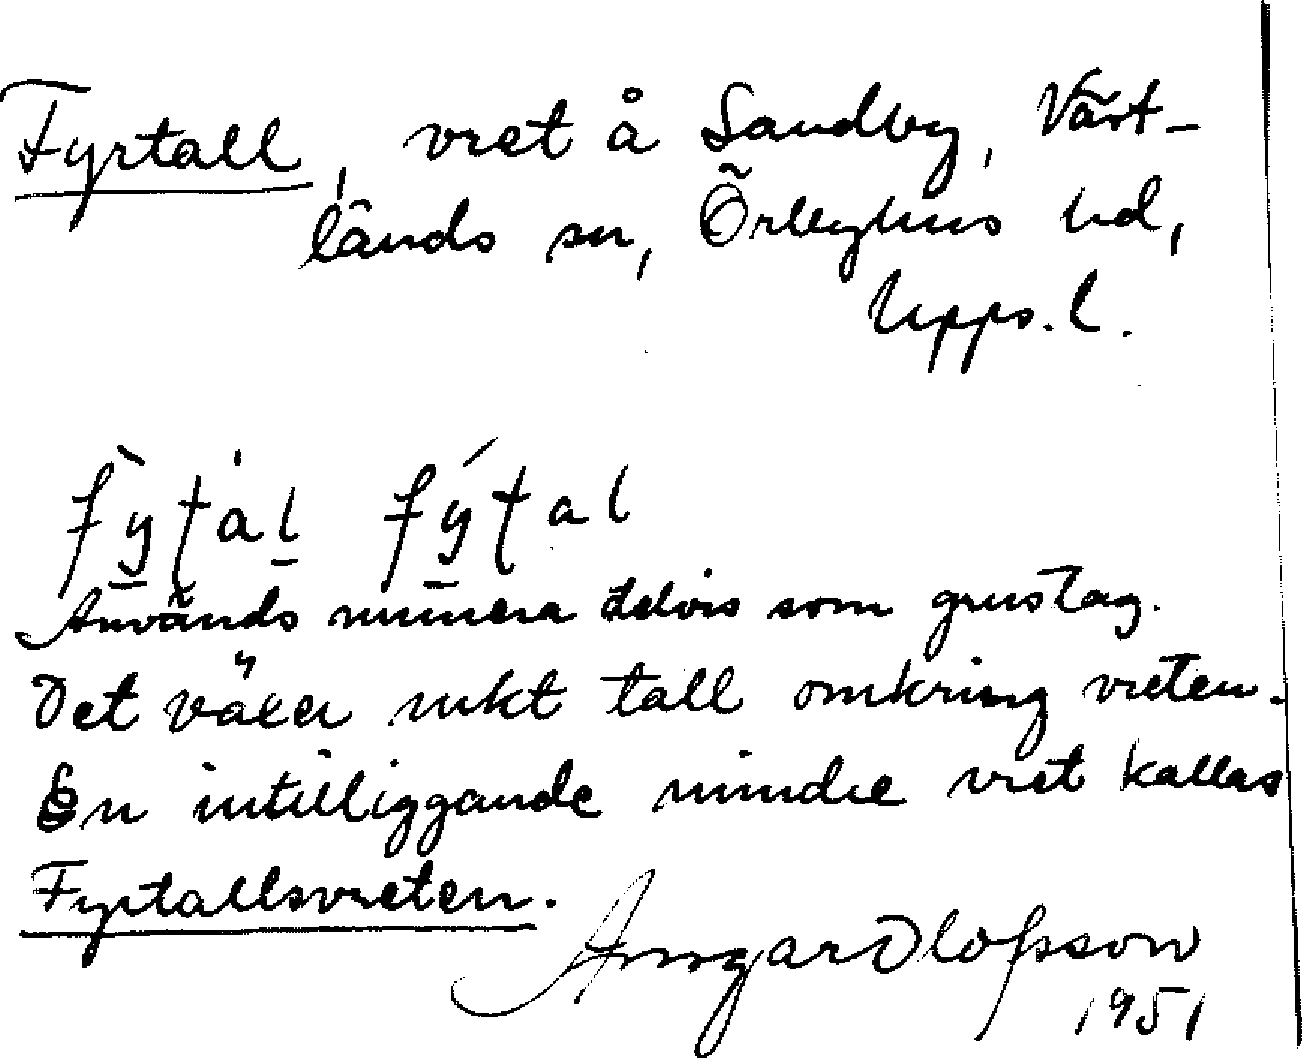 Fyrtall, vret å Sandby, Värt-
lands sn, Örbyhus hd,
Upps. l.
fỳṭàl fýṭal
Används numera delvis som grustag.
Det växer rikt tall omkring vreten.
En intilliggande mindre vret kallas
Fyrtallsvreten.
Ansgar Olofsson
1951